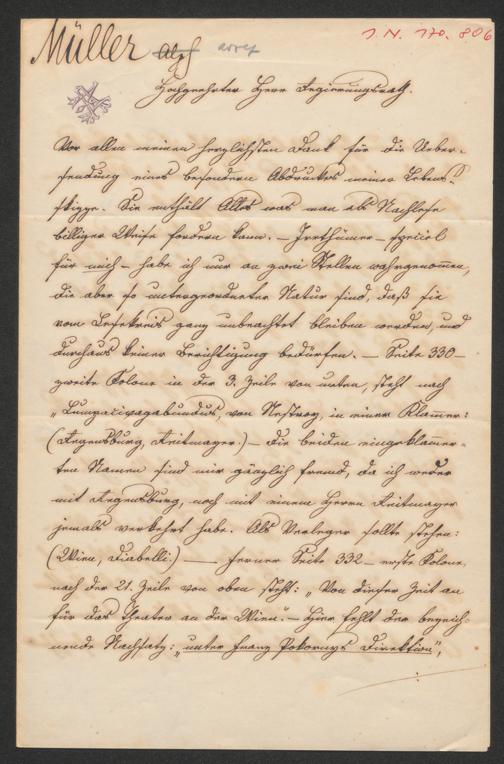 Müller Adolf
I.N. 170.806
Hochgeehrter Herr Regierungsrath.
Vor allem meinen herzlichsten Dank für die Ueber-
sendung eines besonderen Abdruckes meiner Lebens-
skizze. Sie enthält Alles was man als Nachlese
billiger Weise fordern kann. – Irrthümer – speciel
für mich – habe ich nur an zwei Stellen wahrgenom̄en,
die aber so untergeordneter Natur sind, daß sie
vom Lesekreis ganz unbeachtet bleiben werden, und
durchaus keiner Berichtigung bedürfen. – Seite 330 –
zweite Kolone in der 3. Zeile von unten, steht nach
„Lumpacivagabundus, von Nestroy, in einer Klam̄er:
(Regensburg, Reitmayer.) – Die beiden eingeklam̄er-
ten Namen sind mir gänzlich fremd, da ich weder
mit Regensburg, noch mit einem Herrn Reitmayer
jemals verkehrt habe. Als Verleger sollte stehen:
(Wien, Diabelli.) – Ferner Seite 332 – erste Kolone,
nach der 21. Zeile von oben steht: „Von dieser Zeit an
für das Theater an der Wien." – Hier fehlt der bezeich-
nende Nachsatz: „unter Franz Pokornys Direktion",